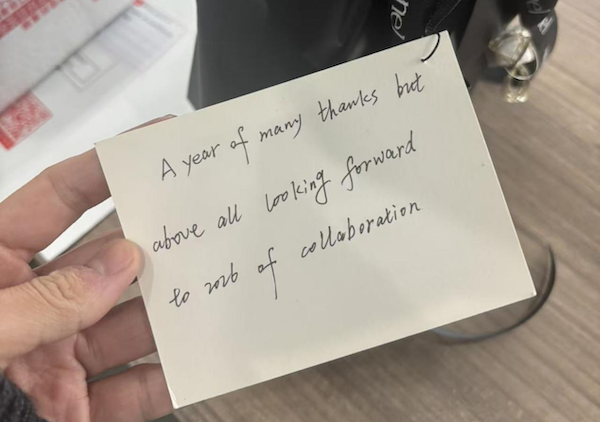 A year of many thanks but
above all looking forward
to 2026 of collaboration